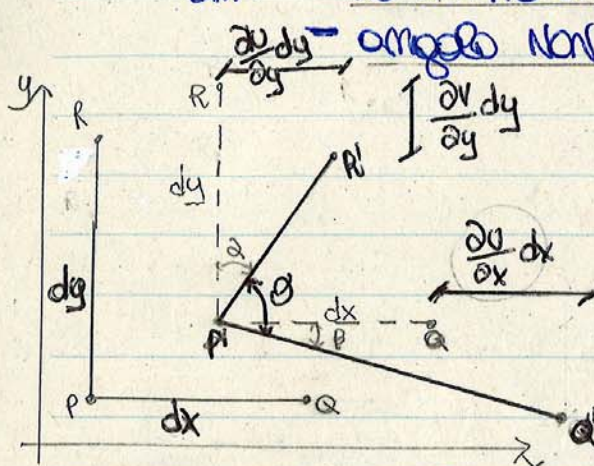 ∂U/∂y dy - angolo NON
y R' ∂V/∂y dy
R
dy R'
∂U/∂x dx
dy α θ
P' dx Q
β
P dx Q Q'
x